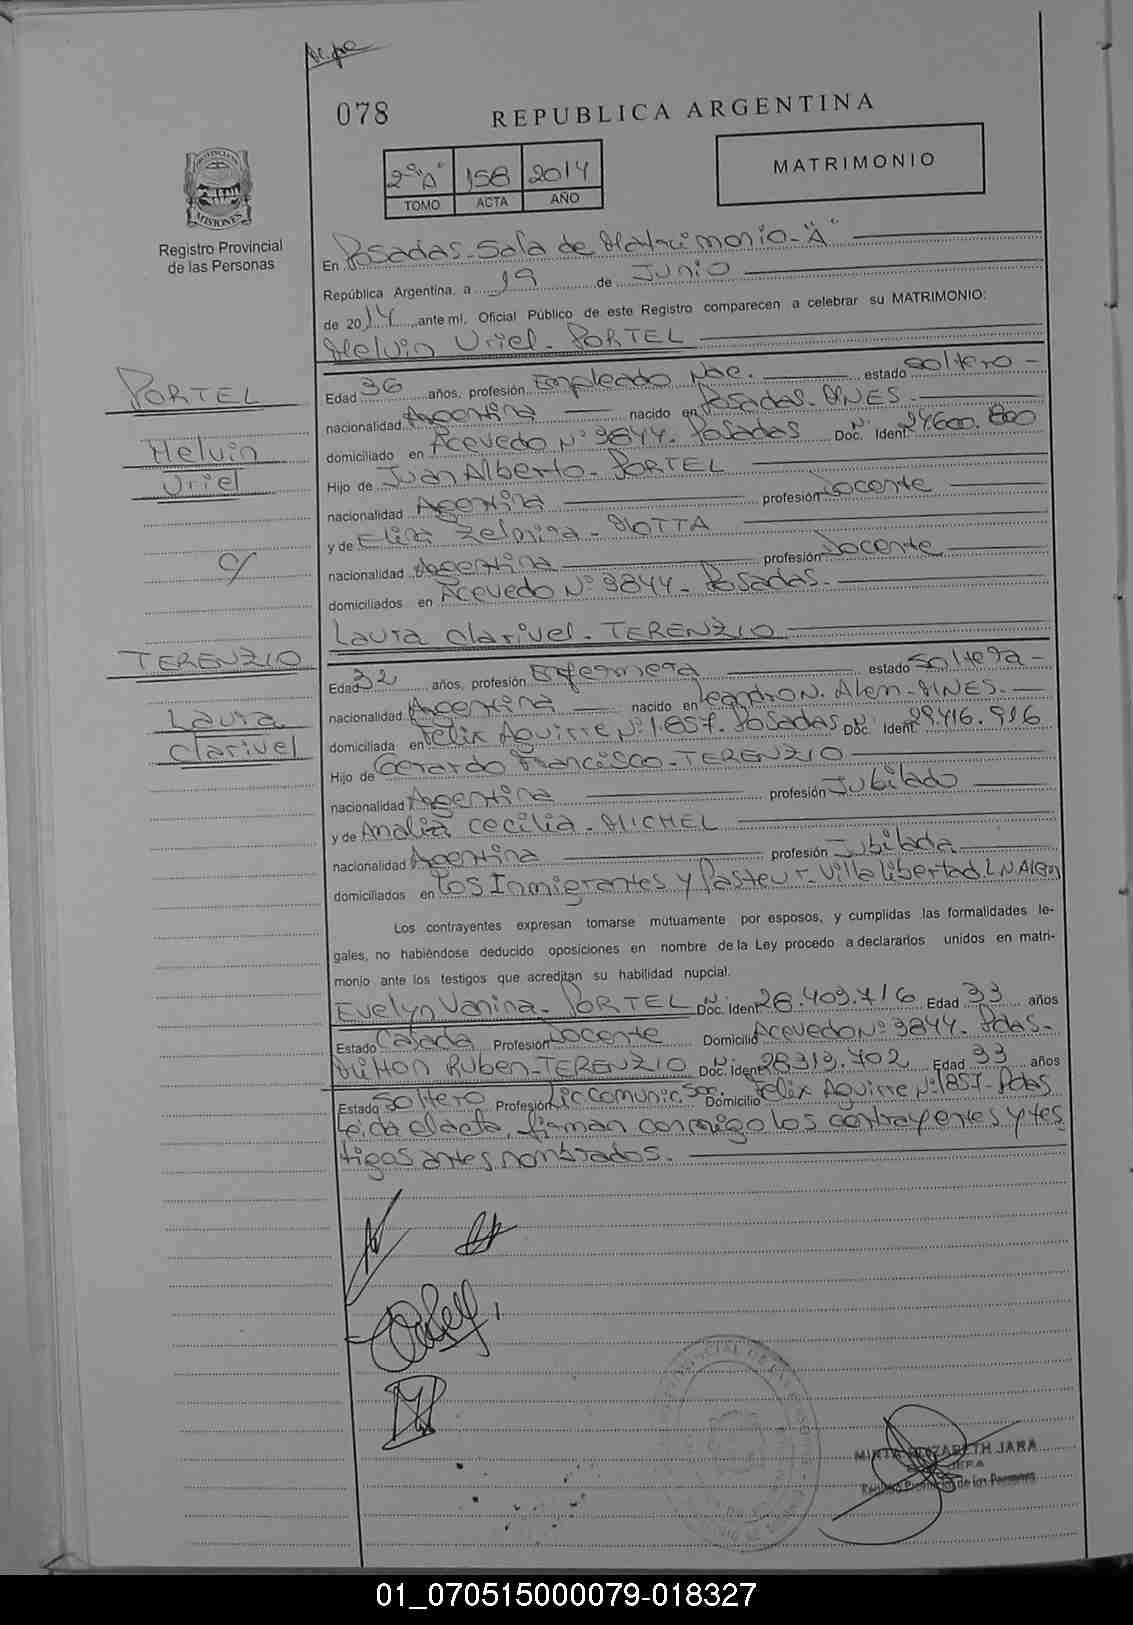 078
REPUBLICA ARGENTINA
2º "A" 158 2014
TOMO ACTA AÑO
MATRIMONIO
PROVINCIA DE
MISIONES
Registro Provincial
de las Personas
En Posadas-Sala de Matrimonio-"A"
República Argentina, a 19 de Junio
de 2014 ante mí, Oficial Público de este Registro comparecen a celebrar su MATRIMONIO:
Melvin Uriel-PORTEL
PORTEL
Melvin
Uriel
c/
TERENZIO
Laura
Clarivel
Edad 36 años, profesión Empleado Nac. estado Soltero-
nacionalidad Argentina nacido en Posadas-MNES.
domiciliado en Acevedo Nº 3844. Posadas Doc. Nº Ident. 24.600.800
Hijo de Juan Alberto-PORTEL
nacionalidad Argentina profesión Docente
y de Elisa Zelmira-MOTTA
nacionalidad Argentina profesión Docente
domiciliados en Acevedo Nº 3844-Posadas.
Laura Clarivel-TERENZIO
Edad 32 años, profesión Enfermera estado Soltera-
nacionalidad Argentina nacido en Leandro N. Alem-MNES.
domiciliada en Felix Aguirre Nº 1857. Posadas Doc. Nº Ident. 29.416.916
Hijo de Gerardo Francisco-TERENZIO
nacionalidad Argentina profesión Jubilado
y de Analia Cecilia-MICHEL
nacionalidad Argentina profesión Jubilada
domiciliados en Los Inmigrantes y Pasteur-Villa Libertad L N Alem
Los contrayentes expresan tomarse mutuamente por esposos, y cumplidas las formalidades le-
gales, no habiéndose deducido oposiciones en nombre de la Ley procedo a declararlos unidos en matri-
monio ante los testigos que acreditan su habilidad nupcial.
Evelyn Vanina-PORTEL Doc. Nº Ident 28.409.716 Edad 33 años
Estado Casada Profesión Docente Domicilio Acevedo Nº 3844. Pdas-
Milton Ruben-TERENZIO Doc. Nº Ident 28313.402 Edad 33 años
Estado Soltero Profesión Lic Comunic. Soc. Domicilio Felix Aguirre Nº 1857-Pdas
Leida el acta, firman conmigo los contrayentes y tes
tigos antes nombrados.
MIRTA ELIZABETH JARA
JEFA
Registro Provincial de las Personas
01_070515000079-018327